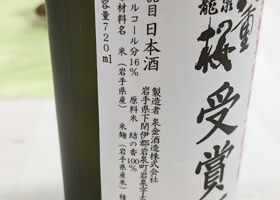 重
龍泉
桜
受賞
製造者 泉金酒造株式会社
岩手県下閉伊郡岩泉町岩泉字
品目 日本酒
コール分16% 原料米 結の香100%
材料名 米(岩手県産) 米麹(岩手県産米)
容量720ml